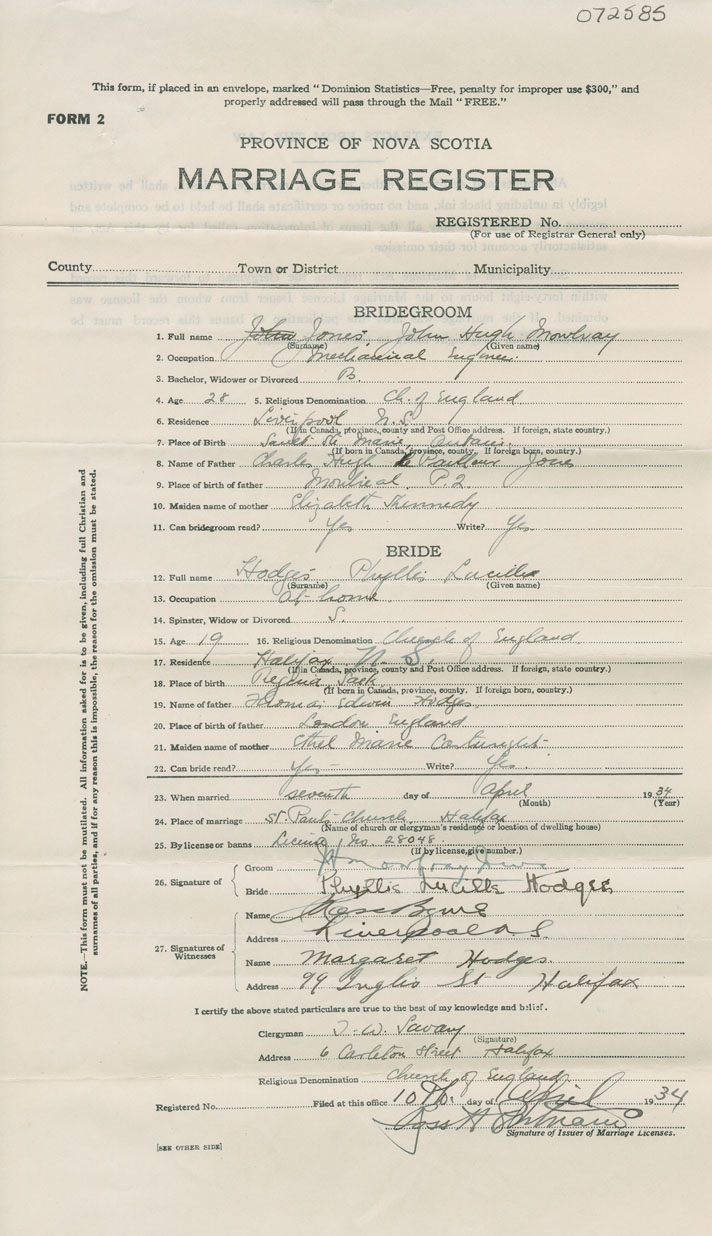 072585
This form, if placed in an envelope, marked "Dominion Statistics—Free, penalty for improper use $300," and
properly addressed will pass through the Mail "FREE."
FORM 2
PROVINCE OF NOVA SCOTIA
MARRIAGE REGISTER
REGISTERED No.
(For use of Registrar General only)
County Town or District Municipality
BRIDEGROOM
1. Full name John Jones John Hugh
(Surname) (Given name)
2. Occupation Mechanical Engineer.
3. Bachelor, Widower or Divorced B.
4. Age 28 5. Religious Denomination Ch. of England
6. Residence Liverpool N.S.
(If in Canada, province, county and Post Office address. If foreign, state country.)
7. Place of Birth Sault Ste Marie, Ontario.
(If born in Canada, province, county. If foreign born, country.)
8. Name of Father Charles Hugh Jones
9. Place of birth of father Montreal P.Q.
10. Maiden name of mother Elizabeth Kennedy
11. Can bridegroom read? Yes Write? Yes
BRIDE
12. Full name Hodges Phyllis Lucille
(Surname) (Given name)
13. Occupation at home
14. Spinster, Widow or Divorced S.
15. Age 19 16. Religious Denomination Church of England
17. Residence Halifax N.S.
(If in Canada, province, county and Post Office address. If foreign, state country.)
18. Place of birth Regina Sask
(If born in Canada, province, county. If foreign born, country.)
19. Name of father Thomas Edwin Hodges
20. Place of birth of father London England
21. Maiden name of mother Ethel Marie Cartwright
22. Can bride read? Yes Write? Yes
23. When married seventh day of April 1934
(Month) (Year)
24. Place of marriage St. Paul's Church, Halifax
(Name of church or clergyman's residence or location of dwelling house)
25. By license or banns License No 28048
(If by license, give number.)
26. Signature of Groom
Bride Phyllis Lucille Hodges
27. Signatures of Witnesses
Name
Address Liverpool N.S.
Name Margaret Hodges.
Address 99 Inglis St Halifax
I certify the above stated particulars are true to the best of my knowledge and belief.
Clergyman T. W. Savary
(Signature)
Address 6 Carleton Street Halifax
Religious Denomination Church of England
Registered No. Filed at this office 10th. day of April 1934
Signature of Issuer of Marriage Licenses.
[SEE OTHER SIDE]
NOTE.—This form must not be mutilated. All information asked for is to be given, including full Christian and
surnames of all parties, and if for any reason this is impossible, the reason for the omission must be stated.